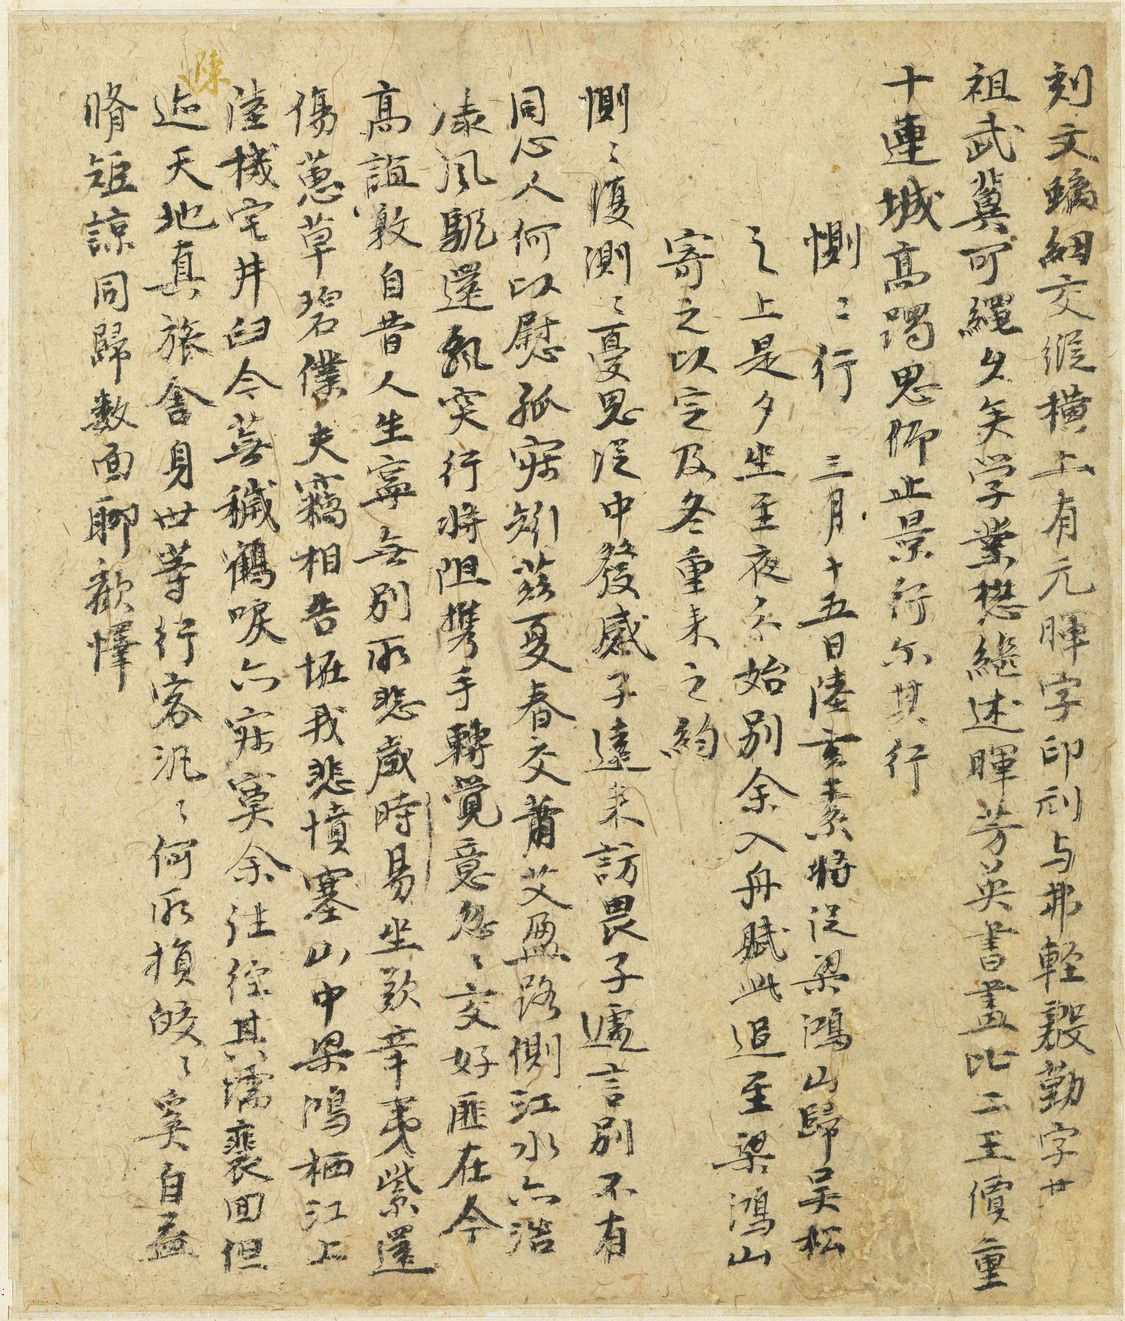 刻文螭紐交縱橫上有元暉字印刓与弗輕毀勤字廿
祖武冀可繩久矣学業懋繼述暉芳英書畫比二王價重
十連城高躅思仰止景行尔其行
惻〻行 三月十五日陸玄素將從梁鴻山歸吴松
之上是夕坐至夜分始別余入舟賦此追至梁鴻山
寄之以定及冬重来之約
惻〻復測〻憂思從中發感子遠来訪畏子遽言別不有
同心人何以慰孤寂矧兹夏春交蕭艾盈路側江水亦浩
漾風颿還飄突行將阻携手轉覺意忽〻交好匪在今
高誼敦自昔人生寧無別所悲歲時易坐歎辛夷紫還
傷蕙草碧僕夫竊相告拒我悲憤塞山中梁鴻栖江上
陸機宅井臼今蕪穢鶴唳亦寂寞余往經其壖裵回但
迹天地真旅舍身世等行客汎〻何所損皎〻奚自益
脩短諒同歸數面聊歡懌
陳